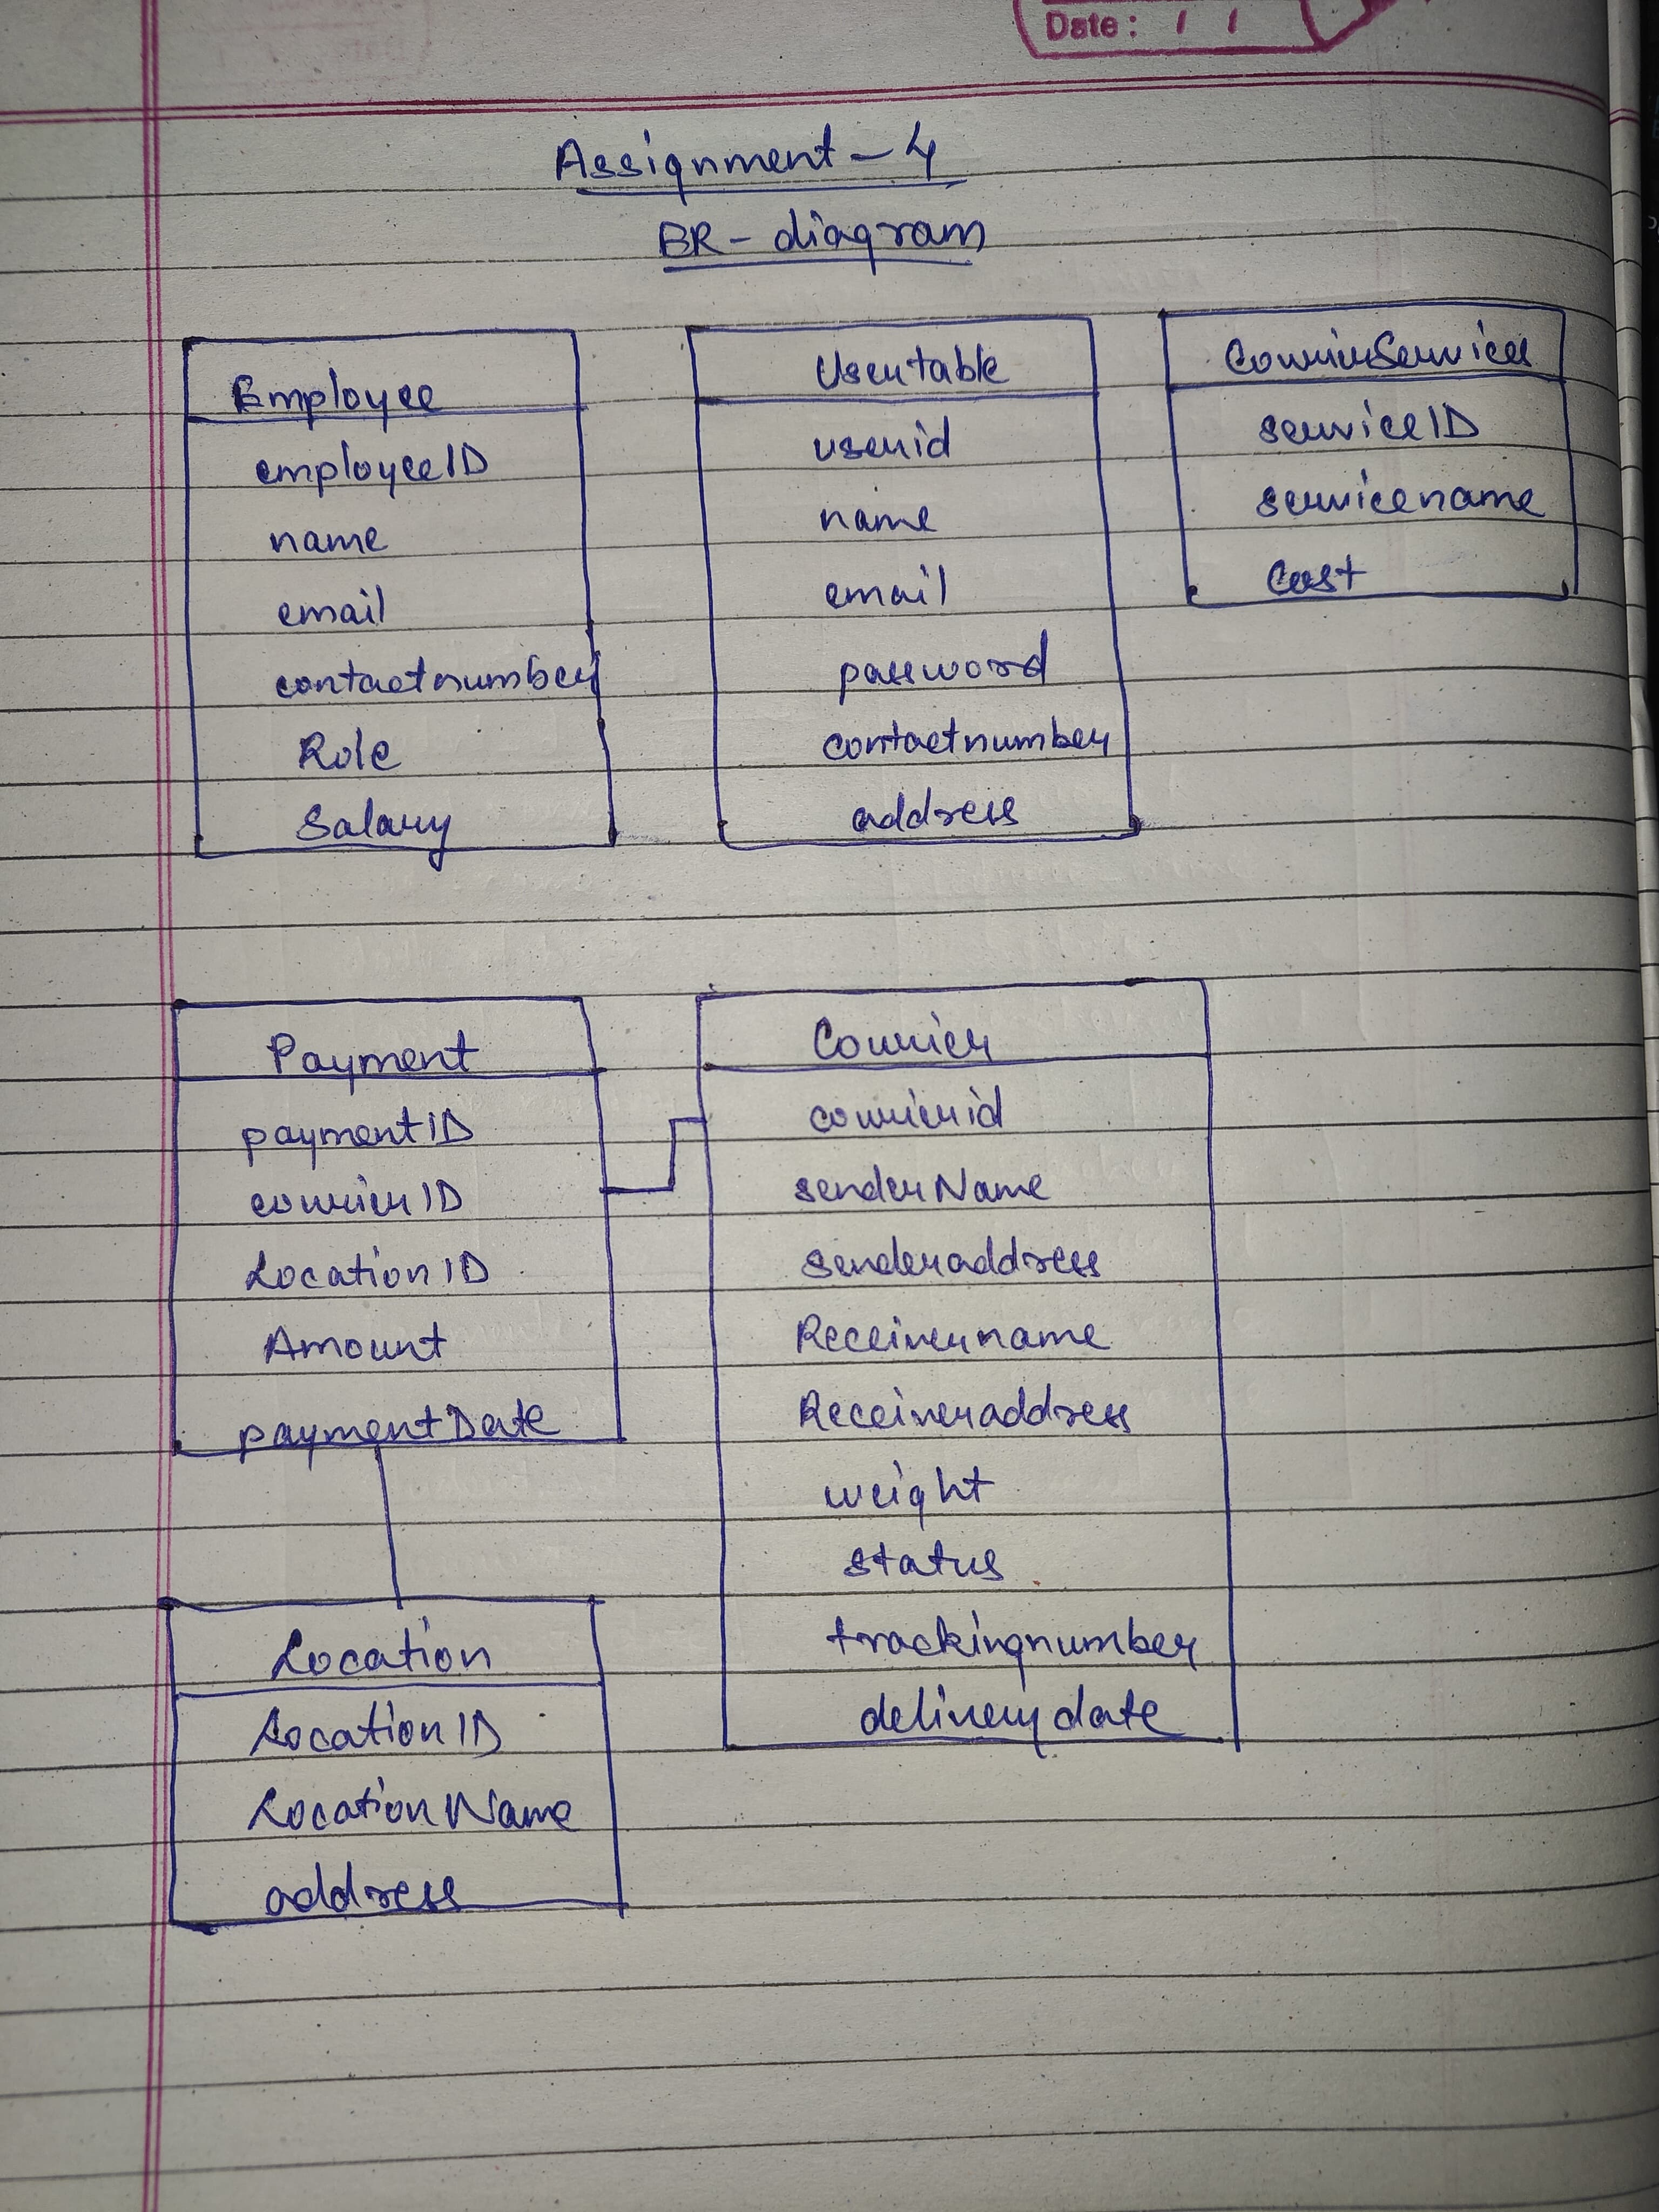 Date: / /
Assignment - 4
ER - diagram
Employee
employeeID
name
email
contactnumber
Role
Salary
Usertable
userid
name
email
password
contactnumber
address
CourierServices
serviceID
servicename
Cost
Payment
paymentID
courierID
LocationID
Amount
paymentDate
Courier
courierid
senderName
senderaddress
Receivername
Receiveraddress
weight
status
trackingnumber
deliverydate
Location
LocationID
LocationName
address